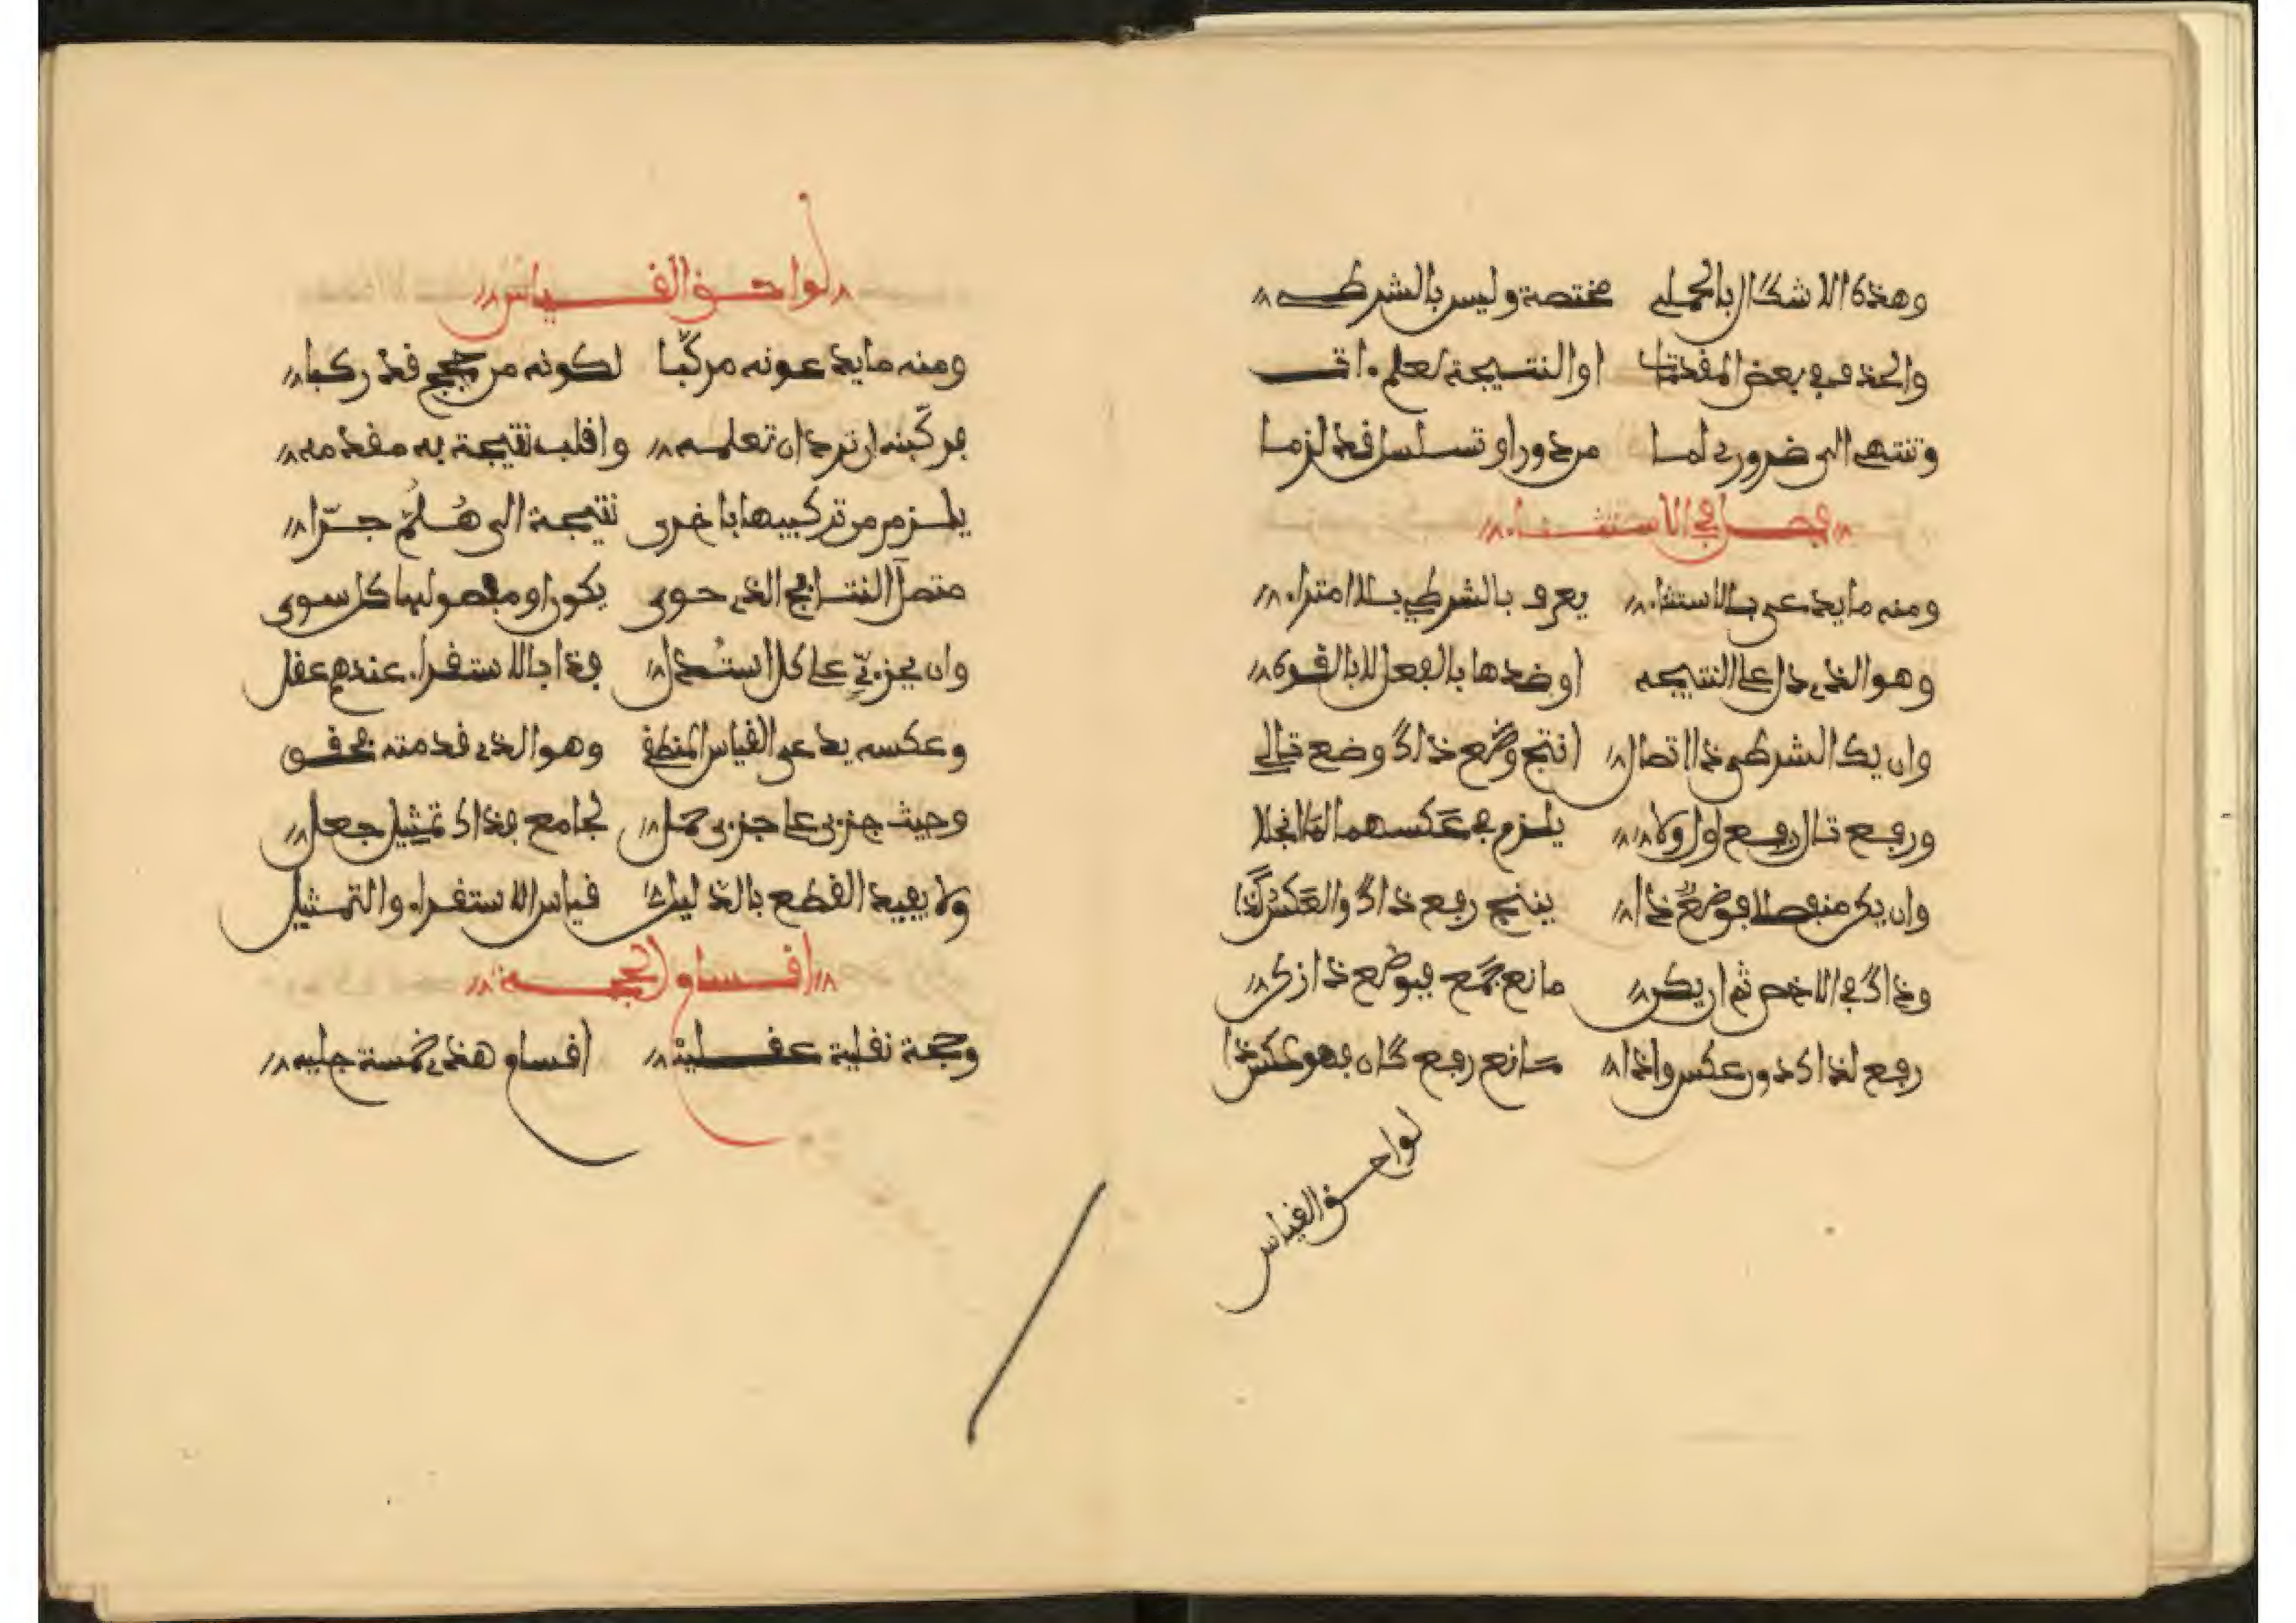 وهذه الاشكال بالحملي مختصة وليس بالشرطي
والحذف في بعض المقدمات او النتيجة لعلم ءات
وتنتهي الى ضروري لما من دور او تسلسل قد لزما
فصل في الاستثناء
ومنه ما يدعى بالاستثناء يعرف بالشرطي بلا امتراء
وهو الذي دل على النتيجه او ضدها بالفعل لا بالقوه
وان يك الشرطي ذا اتصال انتج وضع ذاك وضع تالي
ورفع تال رفع اول ولا يلزم في عكسهما لما انجلا
وان يكن منفصلا فوضع ذا ينتج رفع ذاك والعكس كذا
وذاك في الاخص ثم ان يكن مانع جمع فبوضع ذا زكن
رفع لذاك دون عكس واذا مانع رفع كان فهو عكس ذا
لواحق القياس
لواحق القياس
ومنه ما يدعونه مركبا لكونه من حجج قد ركبا
فركبنه ان ترد ان تعلمه واقلب نتيجة به مقدمه
يلزم من تركيبها باخرى نتيجة الى هلم جرا
متصل النتائج الذي حوى يكون او مفصولها كل سوى
وان بجزءي على كل استدل فذا بالاستقراء عندهم عقل
وعكسه يدعى القياس المنطقي وهو الذي قدمته فحقق
وحيث جزءي على جزءي حمل لجامع فذاك تمثيل جعل
ولا يفيد القطع بالدليل قياس الاستقراء والتمثيل
اقسام الحجة
وحجة نقلية عقليه اقسام هذي خمسة جليه